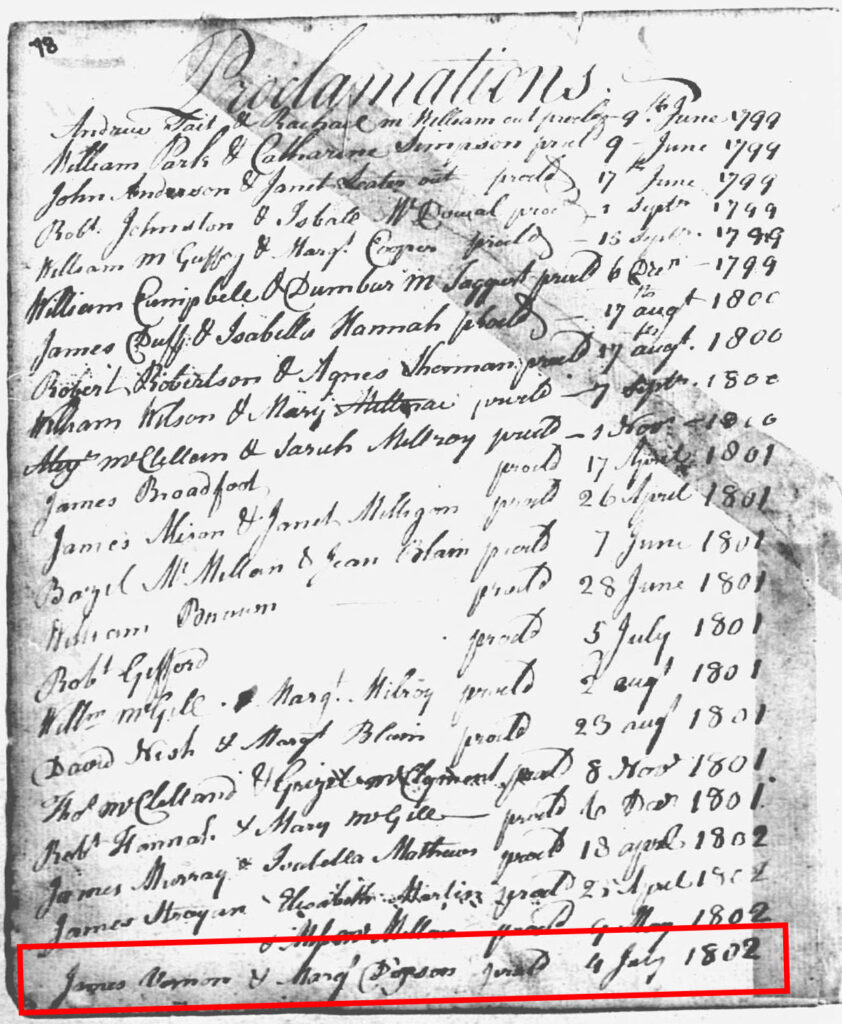 78
Proclamations.
Andrew Tait & Rachael m William out procld 9th June 1799
William Park & Catharine Simpson procld 9 June 1799
John Anderson & Janet out procld 17th June 1799
Robt Johnston & Isbale McDowal procld 1 Septr 1799
William mGuffog & Margt Cooper procld 15 Septr 1799
William Campbell & Dumbar m Taggert procld 6 Decr 1799
James Duff & Isabella Hannah procld 17th augt 1800
Robert Robertson & Agnes Sherman procld 17th augt 1800
William Wilson & Mary procld 7 Septr 1800
Alexr mcClellan & Sarah Millroy procld 1 Novr 1800
James Broadfoot procld 17 April 1801
James Mison & Janet Milligan procld 26 April 1801
Bazel McMillan & Jean Blain procld 7 June 1801
William procld 28 June 1801
Robt Gifford procld 5 July 1801
Willm mcGill & Margt Milroy procld 2 augt 1801
David Nish & Margt Blain procld 23 augt 1801
Thos mcClelland & Grizel mcClyment procld 8 Novr 1801
Robt Hannah & Mary mcGill procld 6 Decr 1801
James Murray & Isabella Mathews procld 18 april 1802
James Strayan Elizabeth Martin procld 25 Aprl 1802
& Millan procld 9 May 1802
James Vernon & Margt Dogson procld 4 July 1802